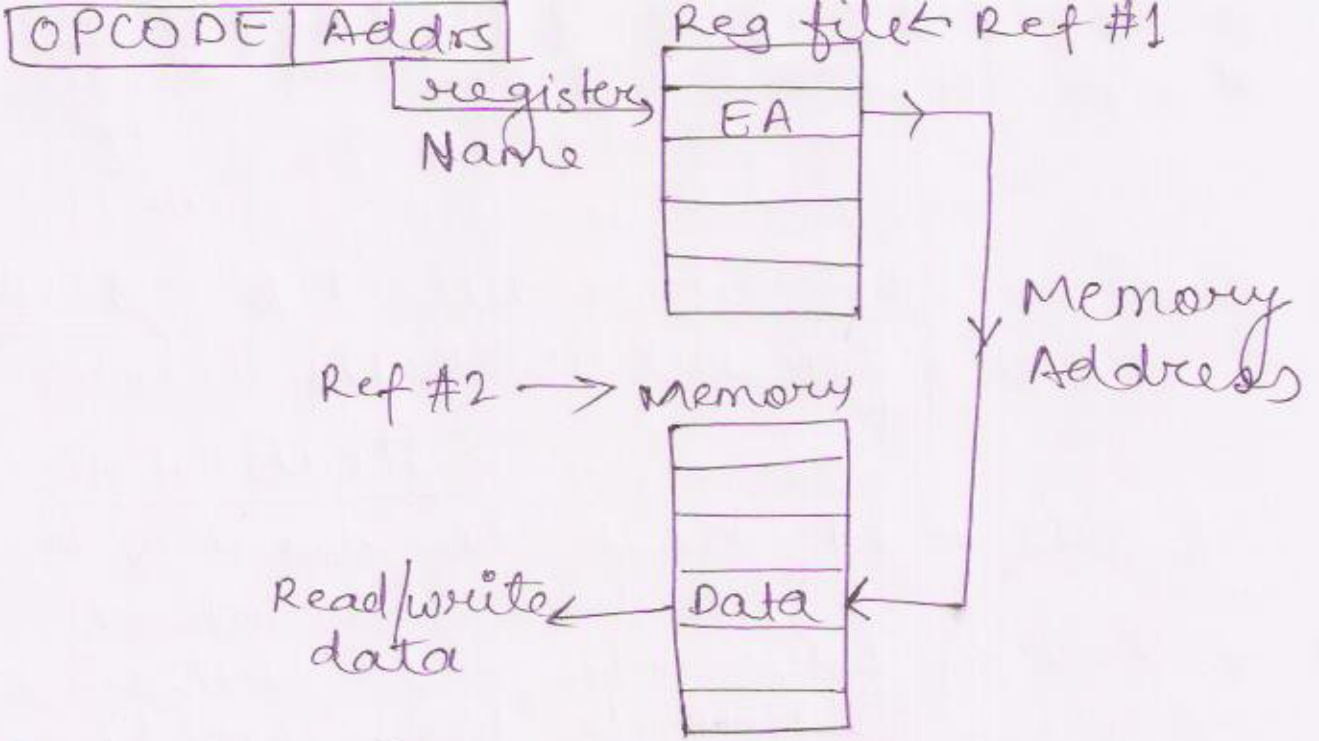 OPCODE Addrs
Reg file ← Ref #1
register
Name
EA
Memory
Address
Ref #2 → Memory
Data
Read/write
data